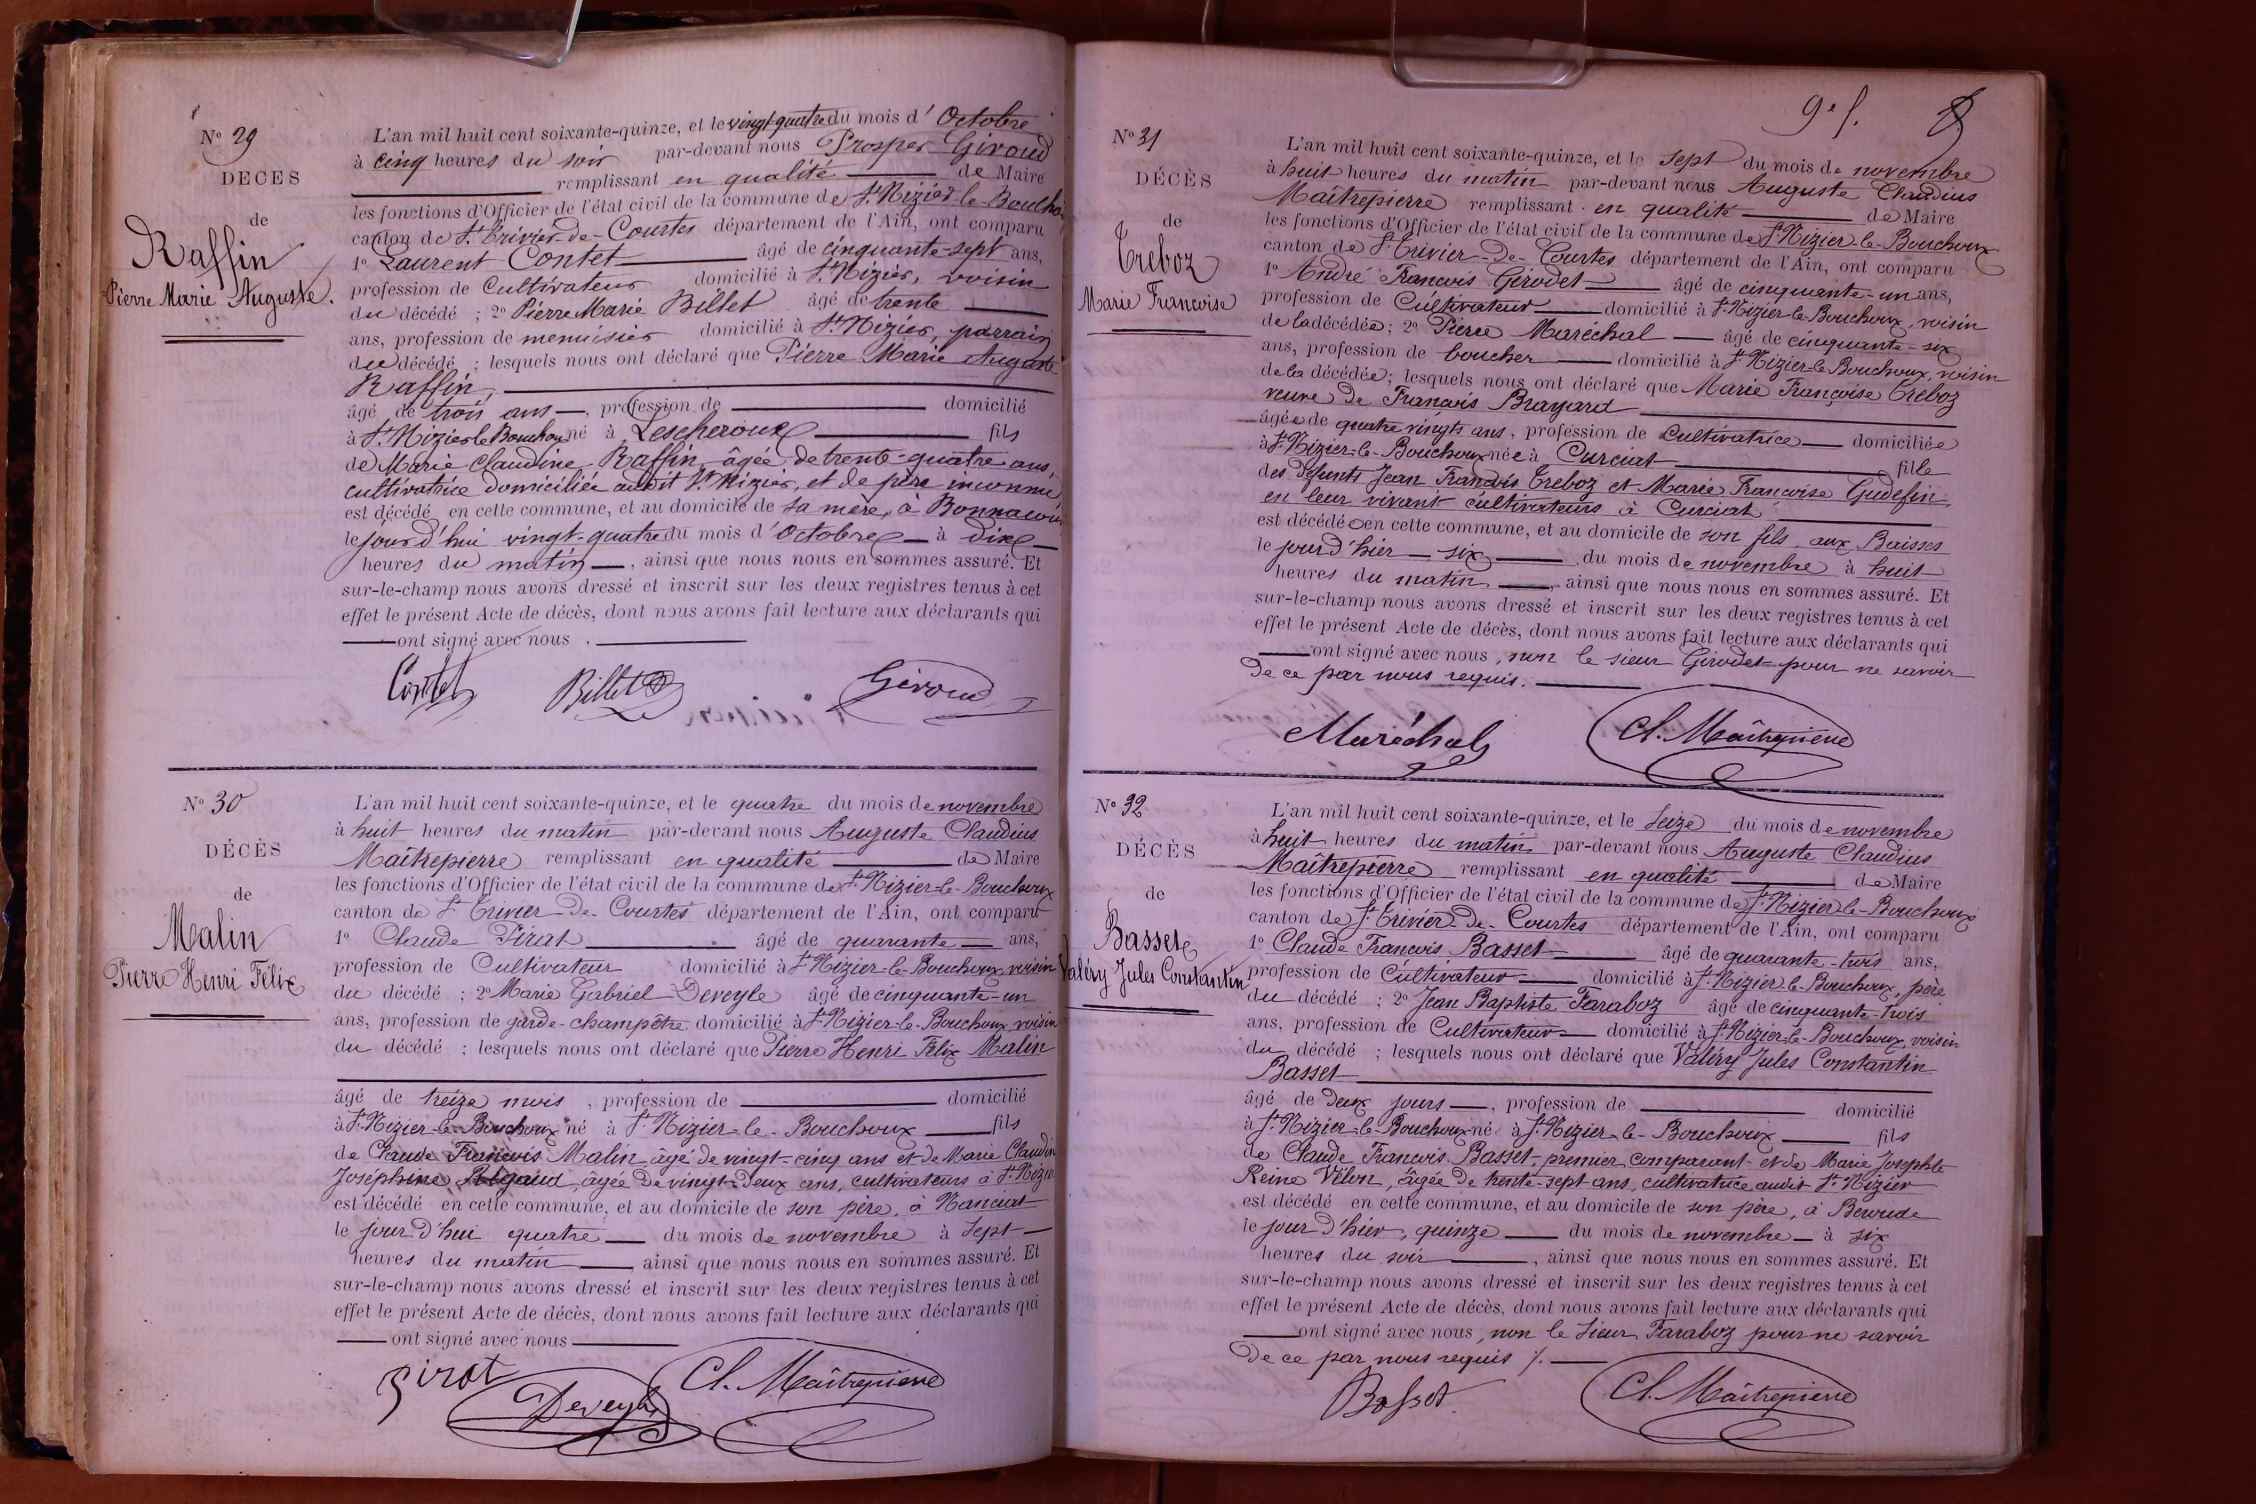 N° 29
DÉCÈS
de
Raffin
Pierre Marie Auguste.
L'an mil huit cent soixante-quinze, et le vingt-quatre du mois d'Octobre
à cinq heures du soir par-devant nous Prosper Giroud
remplissant en qualité de Maire
les fonctions d'Officier de l'état civil de la commune de St. Nizier-le-Boucho
canton de St. Trivier-de-Courtes département de l'Ain, ont comparu
1° Laurent Contet âgé de cinquante-sept ans,
profession de Cultivateur domicilié à St. Nizier, voisin
du décédé ; 2° Pierre Marie Billet âgé de trente
ans, profession de menuisier domicilié à St. Nizier, parrain
du décédé ; lesquels nous ont déclaré que Pierre Marie Auguste
Raffin,
âgé de trois ans, profession de domicilié
à St. Nizier le Bouchoux né à Lescheroux fils
de Marie Claudine Raffin, âgée de trente-quatre ans,
cultivatrice domiciliée audit St. Nizier, et de père inconnu
est décédé en cette commune, et au domicile de sa mère, à
le jour d'hui vingt-quatre du mois d'Octobre à dix
heures du matin, ainsi que nous nous en sommes assuré. Et
sur-le-champ nous avons dressé et inscrit sur les deux registres tenus à cet
effet le présent Acte de décès, dont nous avons fait lecture aux déclarants qui
ont signé avec nous.
Contet Billet Giroud
N° 30
DÉCÈS
de
Malin
Pierre Henri Félix
L'an mil huit cent soixante-quinze, et le quatre du mois de novembre
à huit heures du matin par-devant nous Auguste Claudius
Maîtrepierre remplissant en qualité de Maire
les fonctions d'Officier de l'état civil de la commune de St. Nizier-le-Bouchoux
canton de St. Trivier-de-Courtes département de l'Ain, ont comparu
1° Claude Pirat âgé de quarante ans,
profession de Cultivateur domicilié à St. Nizier-le-Bouchoux, voisin
du décédé ; 2° Marie Gabriel Deveyle âgé de cinquante-un
ans, profession de garde-champêtre domicilié à St. Nizier-le-Bouchoux, voisin
du décédé ; lesquels nous ont déclaré que Pierre Henri Félix Malin
âgé de treize mois, profession de domicilié
à St. Nizier-le-Bouchoux né à St. Nizier-le-Bouchoux fils
de Claude François Malin âgé de vingt-cinq ans et de Marie Claudin
Joséphine Rigaud, âgée de vingt-deux ans, cultivateurs à St. Nizier
est décédé en cette commune, et au domicile de son père, à Nanciat
le jour d'hui quatre du mois de novembre à sept
heures du matin ainsi que nous nous en sommes assuré. Et
sur-le-champ nous avons dressé et inscrit sur les deux registres tenus à cet
effet le présent Acte de décès, dont nous avons fait lecture aux déclarants qui
ont signé avec nous
Pirat Deveyle Cl. Maîtrepierre
9e f.
N° 31
DÉCÈS
de
Treboz
Marie Françoise
L'an mil huit cent soixante-quinze, et le sept du mois de novembre
à huit heures du matin par-devant nous Auguste Claudius
Maîtrepierre remplissant en qualité de Maire
les fonctions d'Officier de l'état civil de la commune de St. Nizier-le-Bouchoux
canton de St. Trivier-de-Courtes département de l'Ain, ont comparu
1° André François Girodet âgé de cinquante-un ans,
profession de Cultivateur domicilié à St. Nizier-le-Bouchoux, voisin
de la décédée ; 2° Pierre Maréchal âgé de cinquante-six
ans, profession de boucher domicilié à St. Nizier-le-Bouchoux, voisin
de la décédée ; lesquels nous ont déclaré que Marie Françoise Treboz
veuve de François Brayard
âgée de quatre vingts ans, profession de Cultivatrice domiciliée
à St. Nizier-le-Bouchoux née à Curciat fille
des défunts Jean François Treboz et Marie Françoise Gudefin
en leur vivant cultivateurs à Curciat
est décédée en cette commune, et au domicile de son fils, aux Baisses
le jour d'hier six du mois de novembre à huit
heures du matin, ainsi que nous nous en sommes assuré. Et
sur-le-champ nous avons dressé et inscrit sur les deux registres tenus à cet
effet le présent Acte de décès, dont nous avons fait lecture aux déclarants qui
ont signé avec nous, non le sieur Girodet pour ne savoir
de ce par nous requis.
Maréchal Cl. Maîtrepierre
N° 32
DÉCÈS
de
Basset
Valéry Jules Constantin
L'an mil huit cent soixante-quinze, et le seize du mois de novembre
à huit heures du matin par-devant nous Auguste Claudius
Maîtrepierre remplissant en qualité de Maire
les fonctions d'Officier de l'état civil de la commune de St. Nizier-le-Bouchoux
canton de St. Trivier-de-Courtes département de l'Ain, ont comparu
1° Claude François Basset âgé de quarante-trois ans,
profession de Cultivateur domicilié à St. Nizier-le-Bouchoux, père
du décédé ; 2° Jean Baptiste Faraboz âgé de cinquante-trois
ans, profession de Cultivateur domicilié à St. Nizier-le-Bouchoux, voisin
du décédé ; lesquels nous ont déclaré que Valéry Jules Constantin
Basset
âgé de deux jours, profession de domicilié
à St. Nizier-le-Bouchoux né à St. Nizier-le-Bouchoux fils
de Claude François Basset, premier comparant et de Marie Josephte
Reine Vilon, âgée de trente-sept ans, cultivatrice audit St. Nizier
est décédé en cette commune, et au domicile de son père, à
le jour d'hier, quinze du mois de novembre à six
heures du soir, ainsi que nous nous en sommes assuré. Et
sur-le-champ nous avons dressé et inscrit sur les deux registres tenus à cet
effet le présent Acte de décès, dont nous avons fait lecture aux déclarants qui
ont signé avec nous, non le sieur Faraboz pour ne savoir
de ce par nous requis /.
Basset Cl. Maîtrepierre